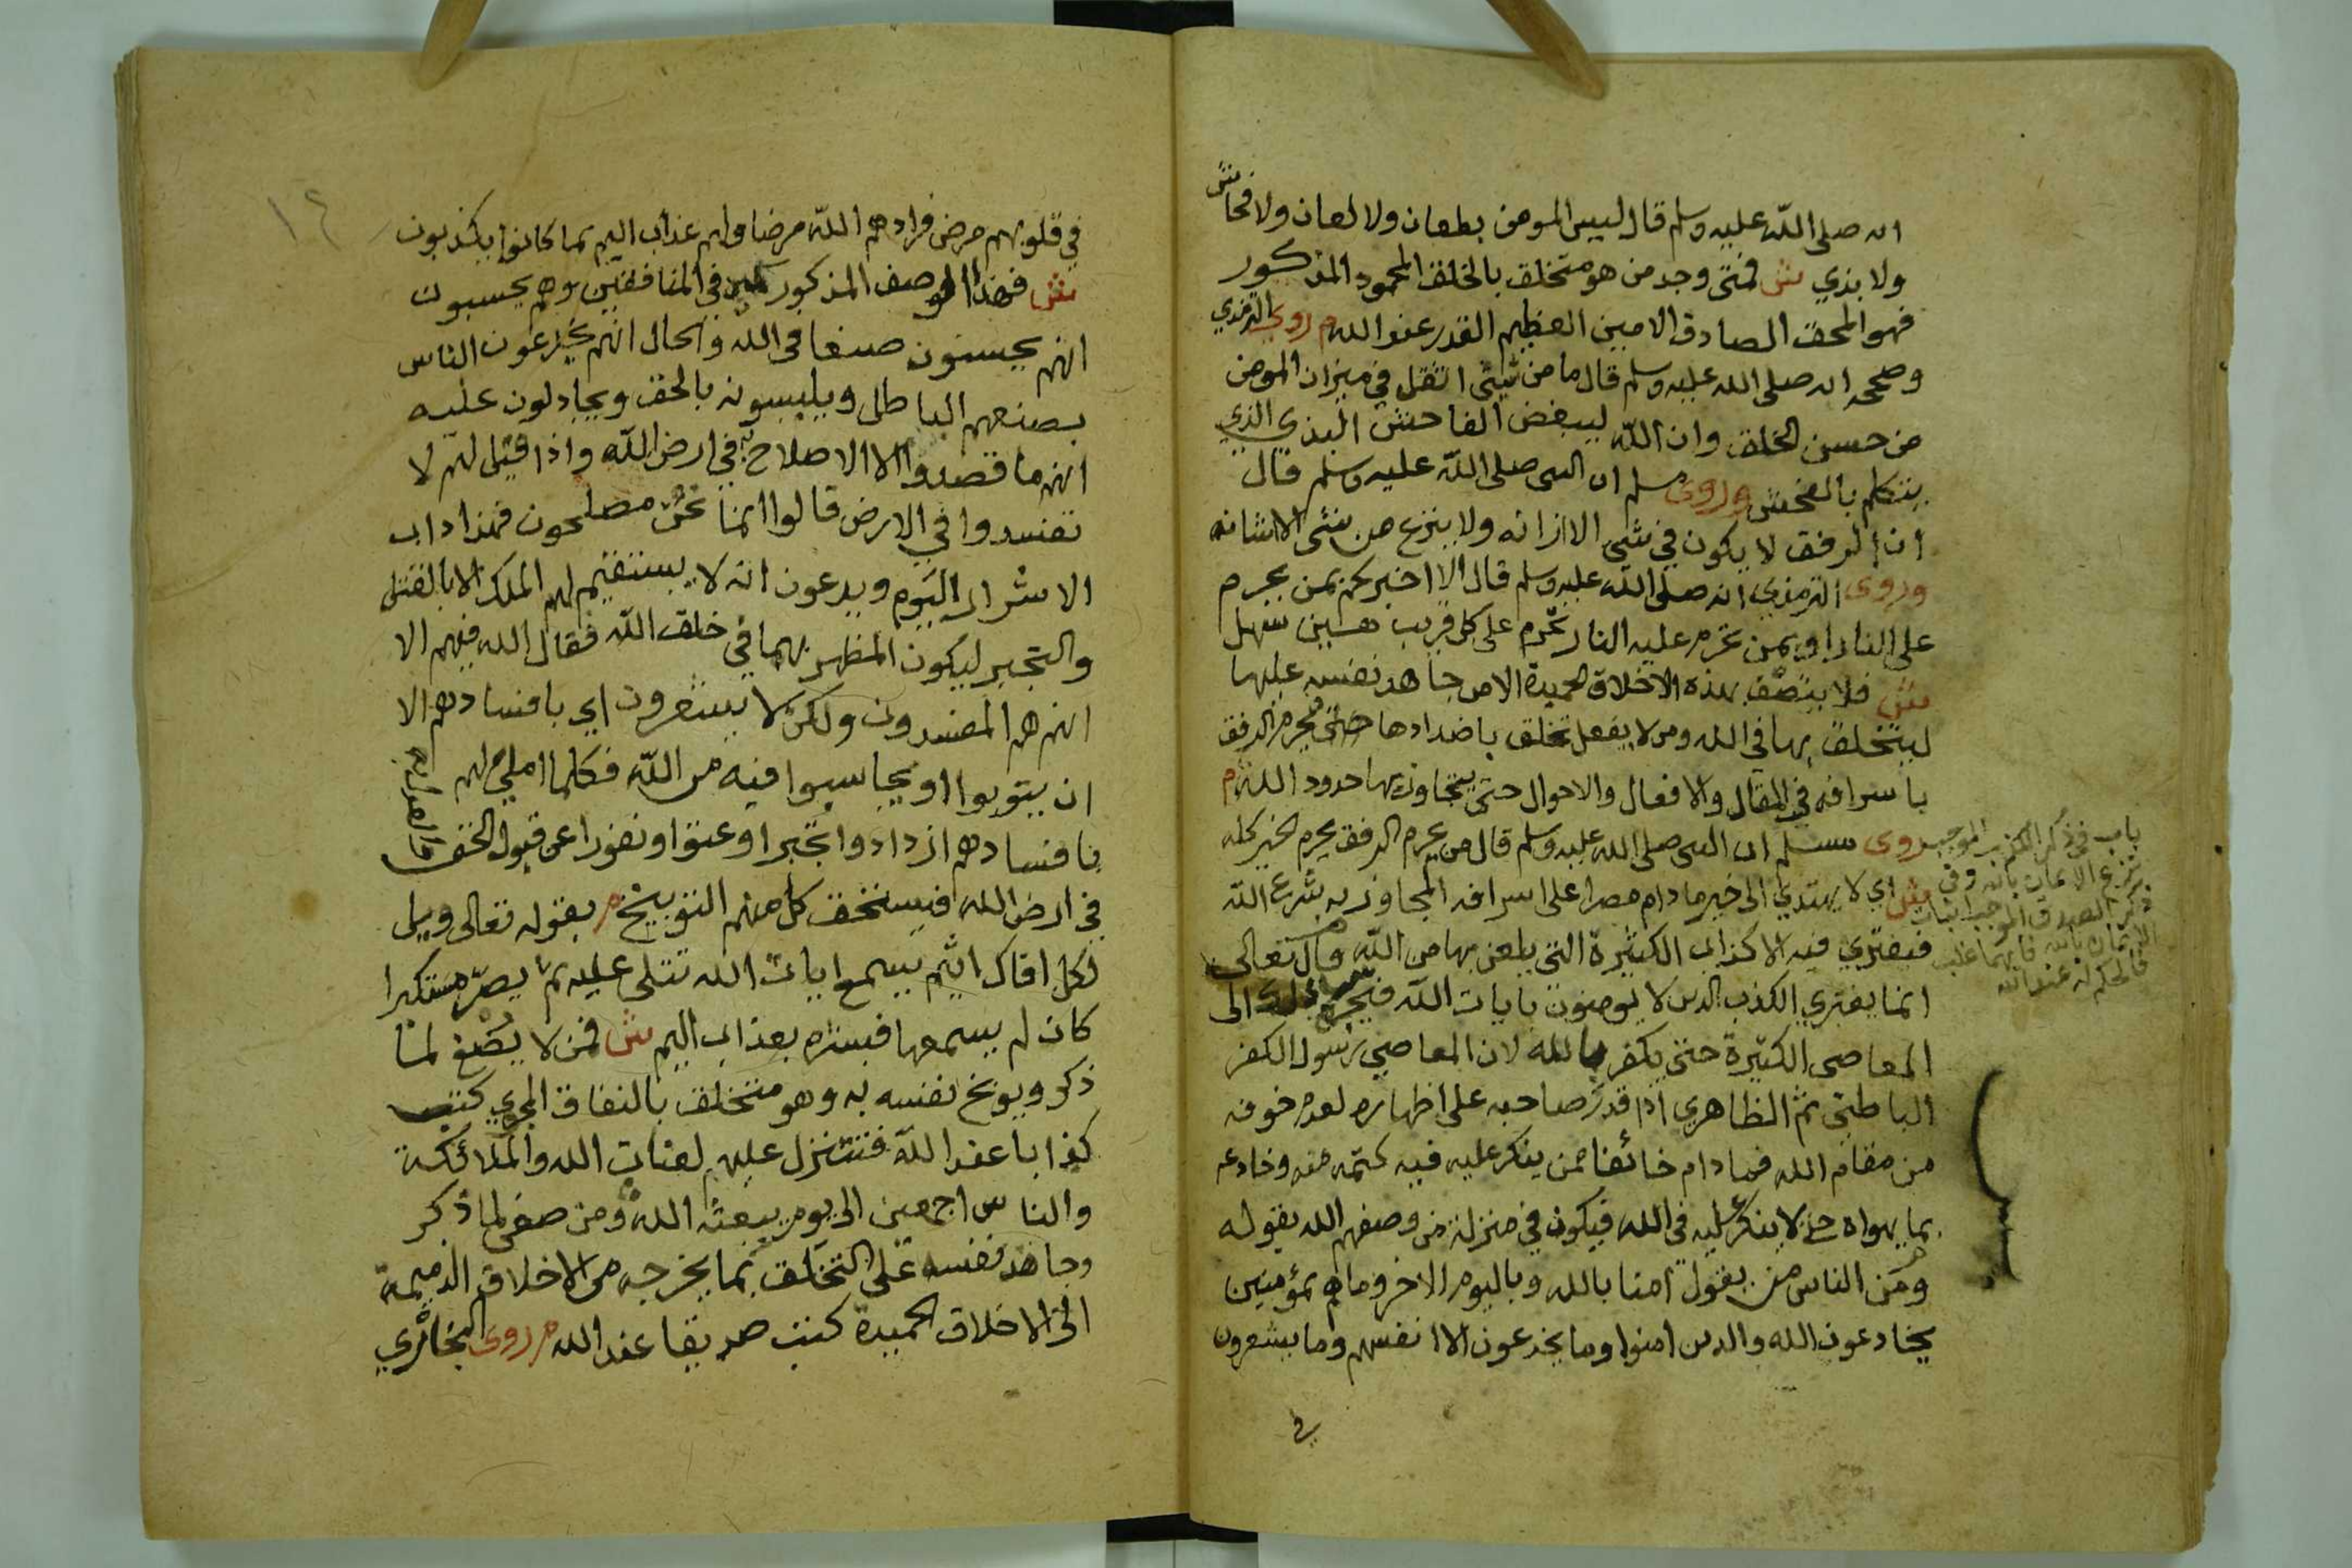 انه صلى الله عليه وسلم قال ليس المومن بطعان ولا لعان ولا فحاش
ولا بذي ش فمتى وجد من هو متخلق بالخلق المحمود المذكور
فهو المحق الصادق الامين العظيم القدر عند الله م روى الترمذي
وصححه انه صلى الله عليه وسلم قال ما من شيئ اثقل في ميزان المومن
من حسن الخلق وان الله ليبغض الفاحش البذي الذي
يتكلم بالفحش وروى مسلم ان النبى صلى الله عليه وسلم قال
ان الرفق لا يكون في شى الا زانه ولا ينزع من شئ الا شانه
وروى الترمذي انه صلى الله عليه وسلم قال الا اخبركم بمن يحرم
على النار او بمن تحرم عليه النار تحرم على كل قريب هين سهل
ش فلا يتصف بهذه الاخلاق الحميدة الا من جاهد نفسه عليها
ليتخلق بها في الله ومن لا يفعل تخلق باضدادها حتى يحرم الرفق
باسرافه في المقال والافعال والاحوال حتى يتجاوز بها حدود الله م
روى مسلم ان النبى صلى الله عليه وسلم قال من يحرم الرفق يحرم الخير كله
ش اي لا يهتدي الى خير ما دام مصرا على اسرافه المجاوز به شرع الله
فيفتري فيه الاكذاب الكثيرة التي يلعن بها من الله م قال تعالى
انما يفتري الكذب الدين لا يومنون بايات الله ش فيجره ذلك الى
المعاصى الكثيرة حتى يكفر بالله لان المعاصي رسول الكفر
الباطني ثم الظاهري اذا قدر صاحبه على اظهاره لعدم خوفه
من مقام الله فما دام خائفا ممن ينكر عليه فيه كتمه منه وخادعه
بما يهواه حتى لا ينكر عليه في الله فيكون في منزلة من وصفهم الله بقوله
ومن الناس من يقول امنا بالله وباليوم الاخر وما هم بمؤمنين
يخادعون الله والدين امنوا وما يخدعون الا انفسهم وما يشعرون
في
باب في ذكر الكذب الموجب
نزع الايمان بالله وفي
ذكر الصدق الموجب اثبات
الايمان بالله فايهما غلب
فالحكم له عند الله
١٢
في قلوبهم مرض فزادهم الله مرضا ولهم عذاب اليم بما كانوا يكذبون
ش فهذا الوصف المذكور في المنافقين وهم يحسبون
انهم يحسنون صنعا في الله والحال انهم يخدعون الناس
بصنعهم الباطل ويلبسونه بالحق ويجادلون عليه
انهم ما قصدوا الا الاصلاح به في ارض الله واذا قيل لهم لا
تفسدوا في الارض قالوا انما نحن مصلحون فهذا داب
الاشرار اليوم ويدعون انه لا يستقيم لهم الملك الا بالقتل
والتجبر ليكون المظهر بهما في خلق الله فقال الله فيهم الا
انهم هم المفسدون ولكن لا يشعرون اي بافسادهم الا
ان يتوبوا او يحاسبوا فيه من الله فكلما املي لهم
بافسادهم ازدادوا تجبرا وعتوا ونفورا عن قبول الحق
في ارض الله فيستحق كل منهم التوبيخ م بقوله تعالى ويل
لكل افاك اثيم يسمع ايات الله تتلى عليه ثم يصر مستكبرا
كان لم يسمعها فبشره بعذاب اليم ش فمن لا يصغ لما
ذكر ويوبخ نفسه به وهو متخلق بالنفاق المجري كتب
كذابا عند الله فتتنزل عليه لعنات الله والملائكة
والناس اجمعين الى يوم يبعثه الله ومن صغى لما ذكر
وجاهد نفسه على التخلق بما يخرجه من الاخلاق الذميمة
الى الاخلاق الحميدة كتب صديقا عند الله م روى البخاري